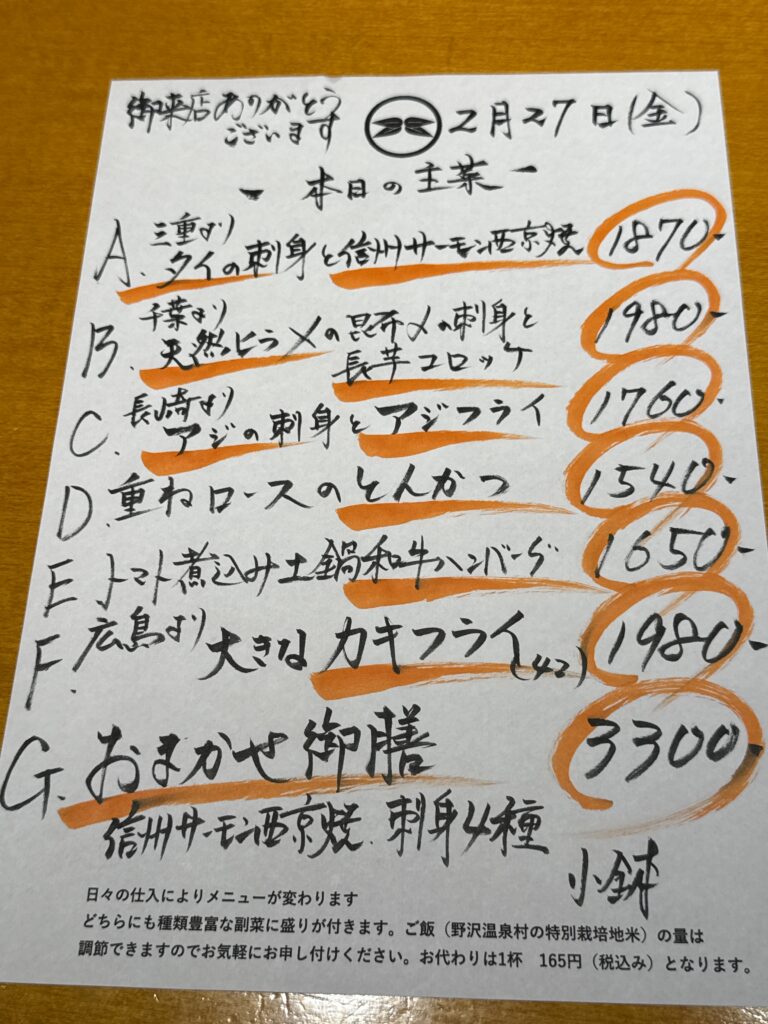 御来店ありがとう
ございます
2月27日(金)
- 本日の主菜 -
A. 三重より
タイの刺身と信州サーモン西京焼 1870-
B. 千葉より
天然ヒラメの昆布〆の刺身と
長芋コロッケ 1980-
C. 長崎より
アジの刺身とアジフライ 1760-
D. 重ねロースのとんかつ 1540-
E トマト煮込み土鍋和牛ハンバーグ 1650-
F. 広島より 大きなカキフライ(4コ) 1980-
G. おまかせ御膳 3300-
信州サーモン西京焼. 刺身4種
小鉢
日々の仕入によりメニューが変わります
どちらにも種類豊富な副菜に盛りが付きます。ご飯（野沢温泉村の特別栽培地米）の量は
調節できますのでお気軽にお申し付けください。お代わりは1杯　165円（税込み）となります。